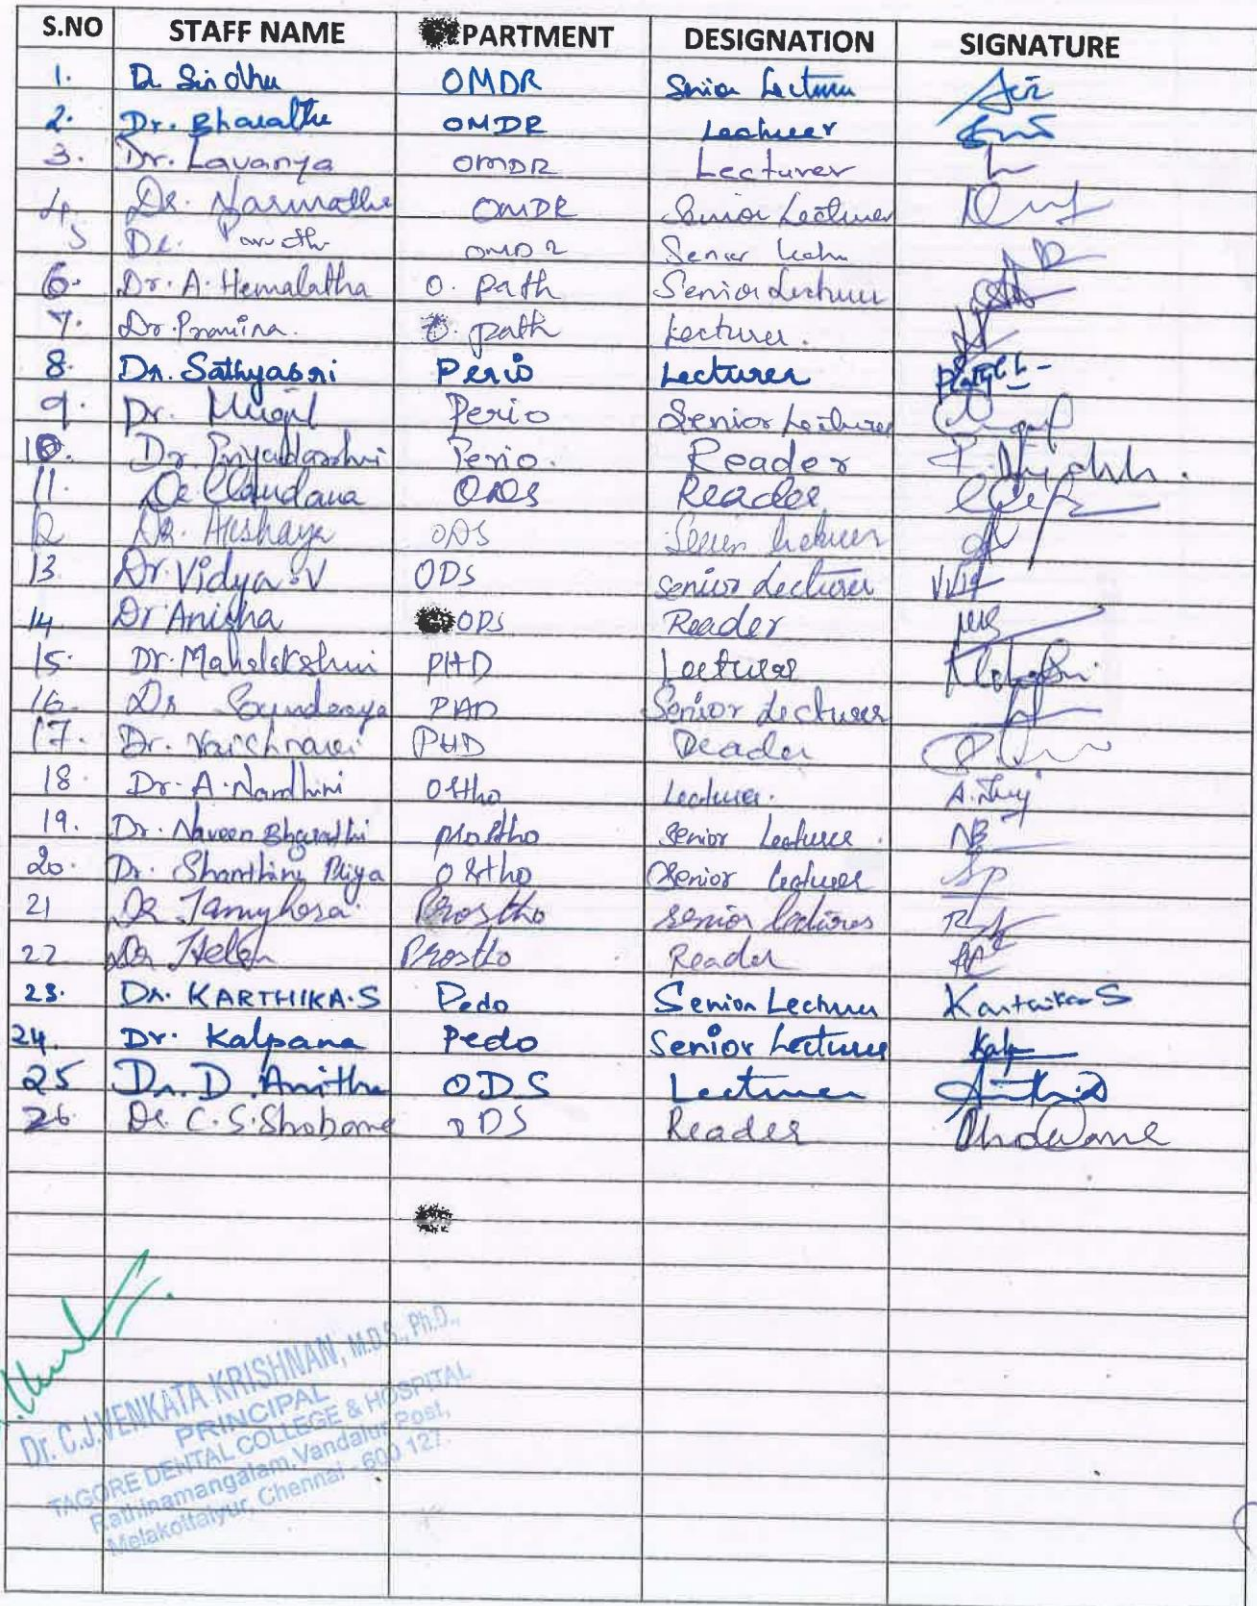 S.NO STAFF NAME PARTMENT DESIGNATION SIGNATURE
1. Dr Sindhu OMDR Senior Lecturer
2. Dr. Bharathi OMDR Lecturer
3. Dr. Lavanya OMDR Lecturer
4. Dr. Narmatha OMDR Senior Lecturer
5 Dr. OMDR Senior
6. Dr. A. Hemalatha O. Path Senior Lecturer
7. Dr. Pramina. O. path Lecturer.
8. Dr. Sathyasri Perio Lecturer
9. Dr. Mugil Perio Senior Lecturer
10. Dr. Priyadarshini Perio. Reader
11. Dr Chandana Reader
12 Dr. Akshaya ODS Senior Lecturer
13. Dr. Vidya.V ODS Senior Lecturer
14 Dr Anisha ODS Reader
15. Dr. Mahalakshmi PHD Lecturer
16. Dr Soundarya PHD Senior Lecturer
17. Dr. Vaishnavi PHD Reader
18. Dr. A. Nandhini Ortho Lecturer.
19. Dr. Naveen Bharathi prostho Senior Lecturer NB
20. Dr. Shanthini Priya Ortho Senior Lecturer SP
21 Dr Prostho Senior lecturer
22 Dr Helen Prostho Reader
23. Dr. KARTHIKA.S Pedo Senior Lecturer Karthika S
24. Dr. Kalpana Pedo Senior Lecturer
25 Dr. D. Anitha ODS Lecturer
26. Dr. C.S.Shobana ODS Reader
Dr. C.J.VENKATA KRISHNAN, M.D.S., Ph.D.,
PRINCIPAL
TAGORE DENTAL COLLEGE & HOSPITAL
Rathinamangalam, Vandalur Post,
Melakottaiyur, Chennai - 600 127.